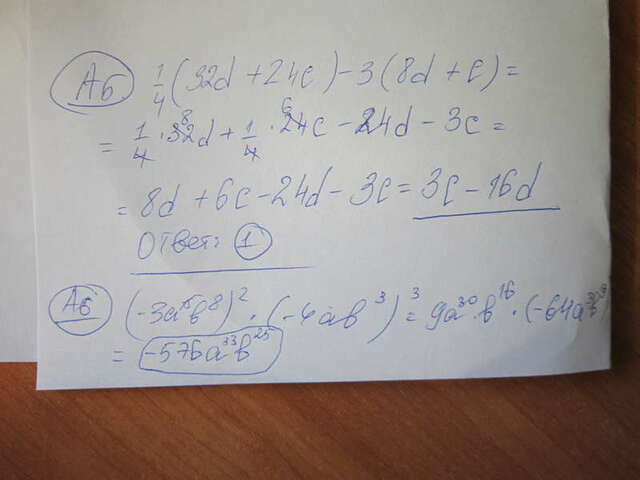 А5 1/4 (32d + 24c) - 3 (8d + c) =
= 1/4 · 32d + 1/4 · 24c - 24d - 3c =
= 8d + 6c - 24d - 3c = 3c - 16d
Ответ: 1
А6 (-3a¹⁵b⁸)² · (-4ab³)³ = 9a³⁰b¹⁶ · (-64a³b⁹)
= -576a³³b²⁵